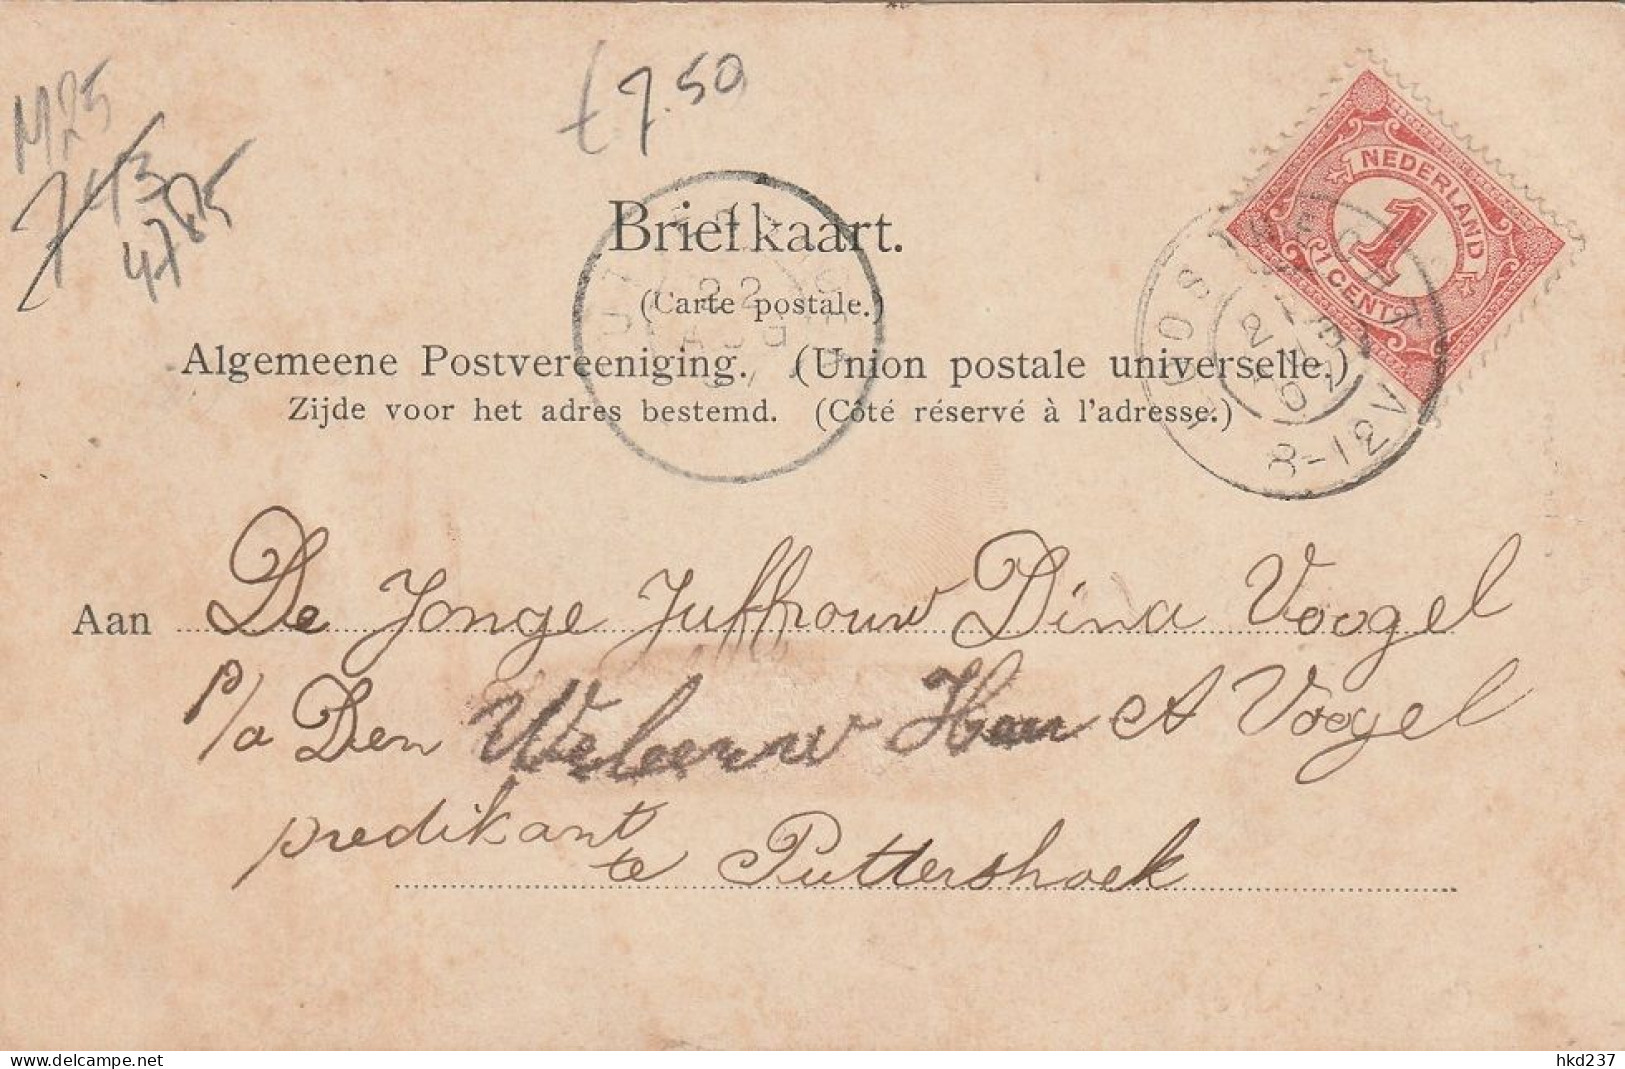 M25
743
4785
f 7.50
NEDERLAND
1
1 CENT
22
AUG
8-12V
Briefkaart.
(Carte postale.)
Algemeene Postvereeniging. (Union postale universelle.)
Zijde voor het adres bestemd. (Côté réservé à l'adresse.)
Aan De Jonge Juffrouw Dina Voogel
p/a Den Weleerw Heer A Voogel
predikant
te Puttershoek
hkd237